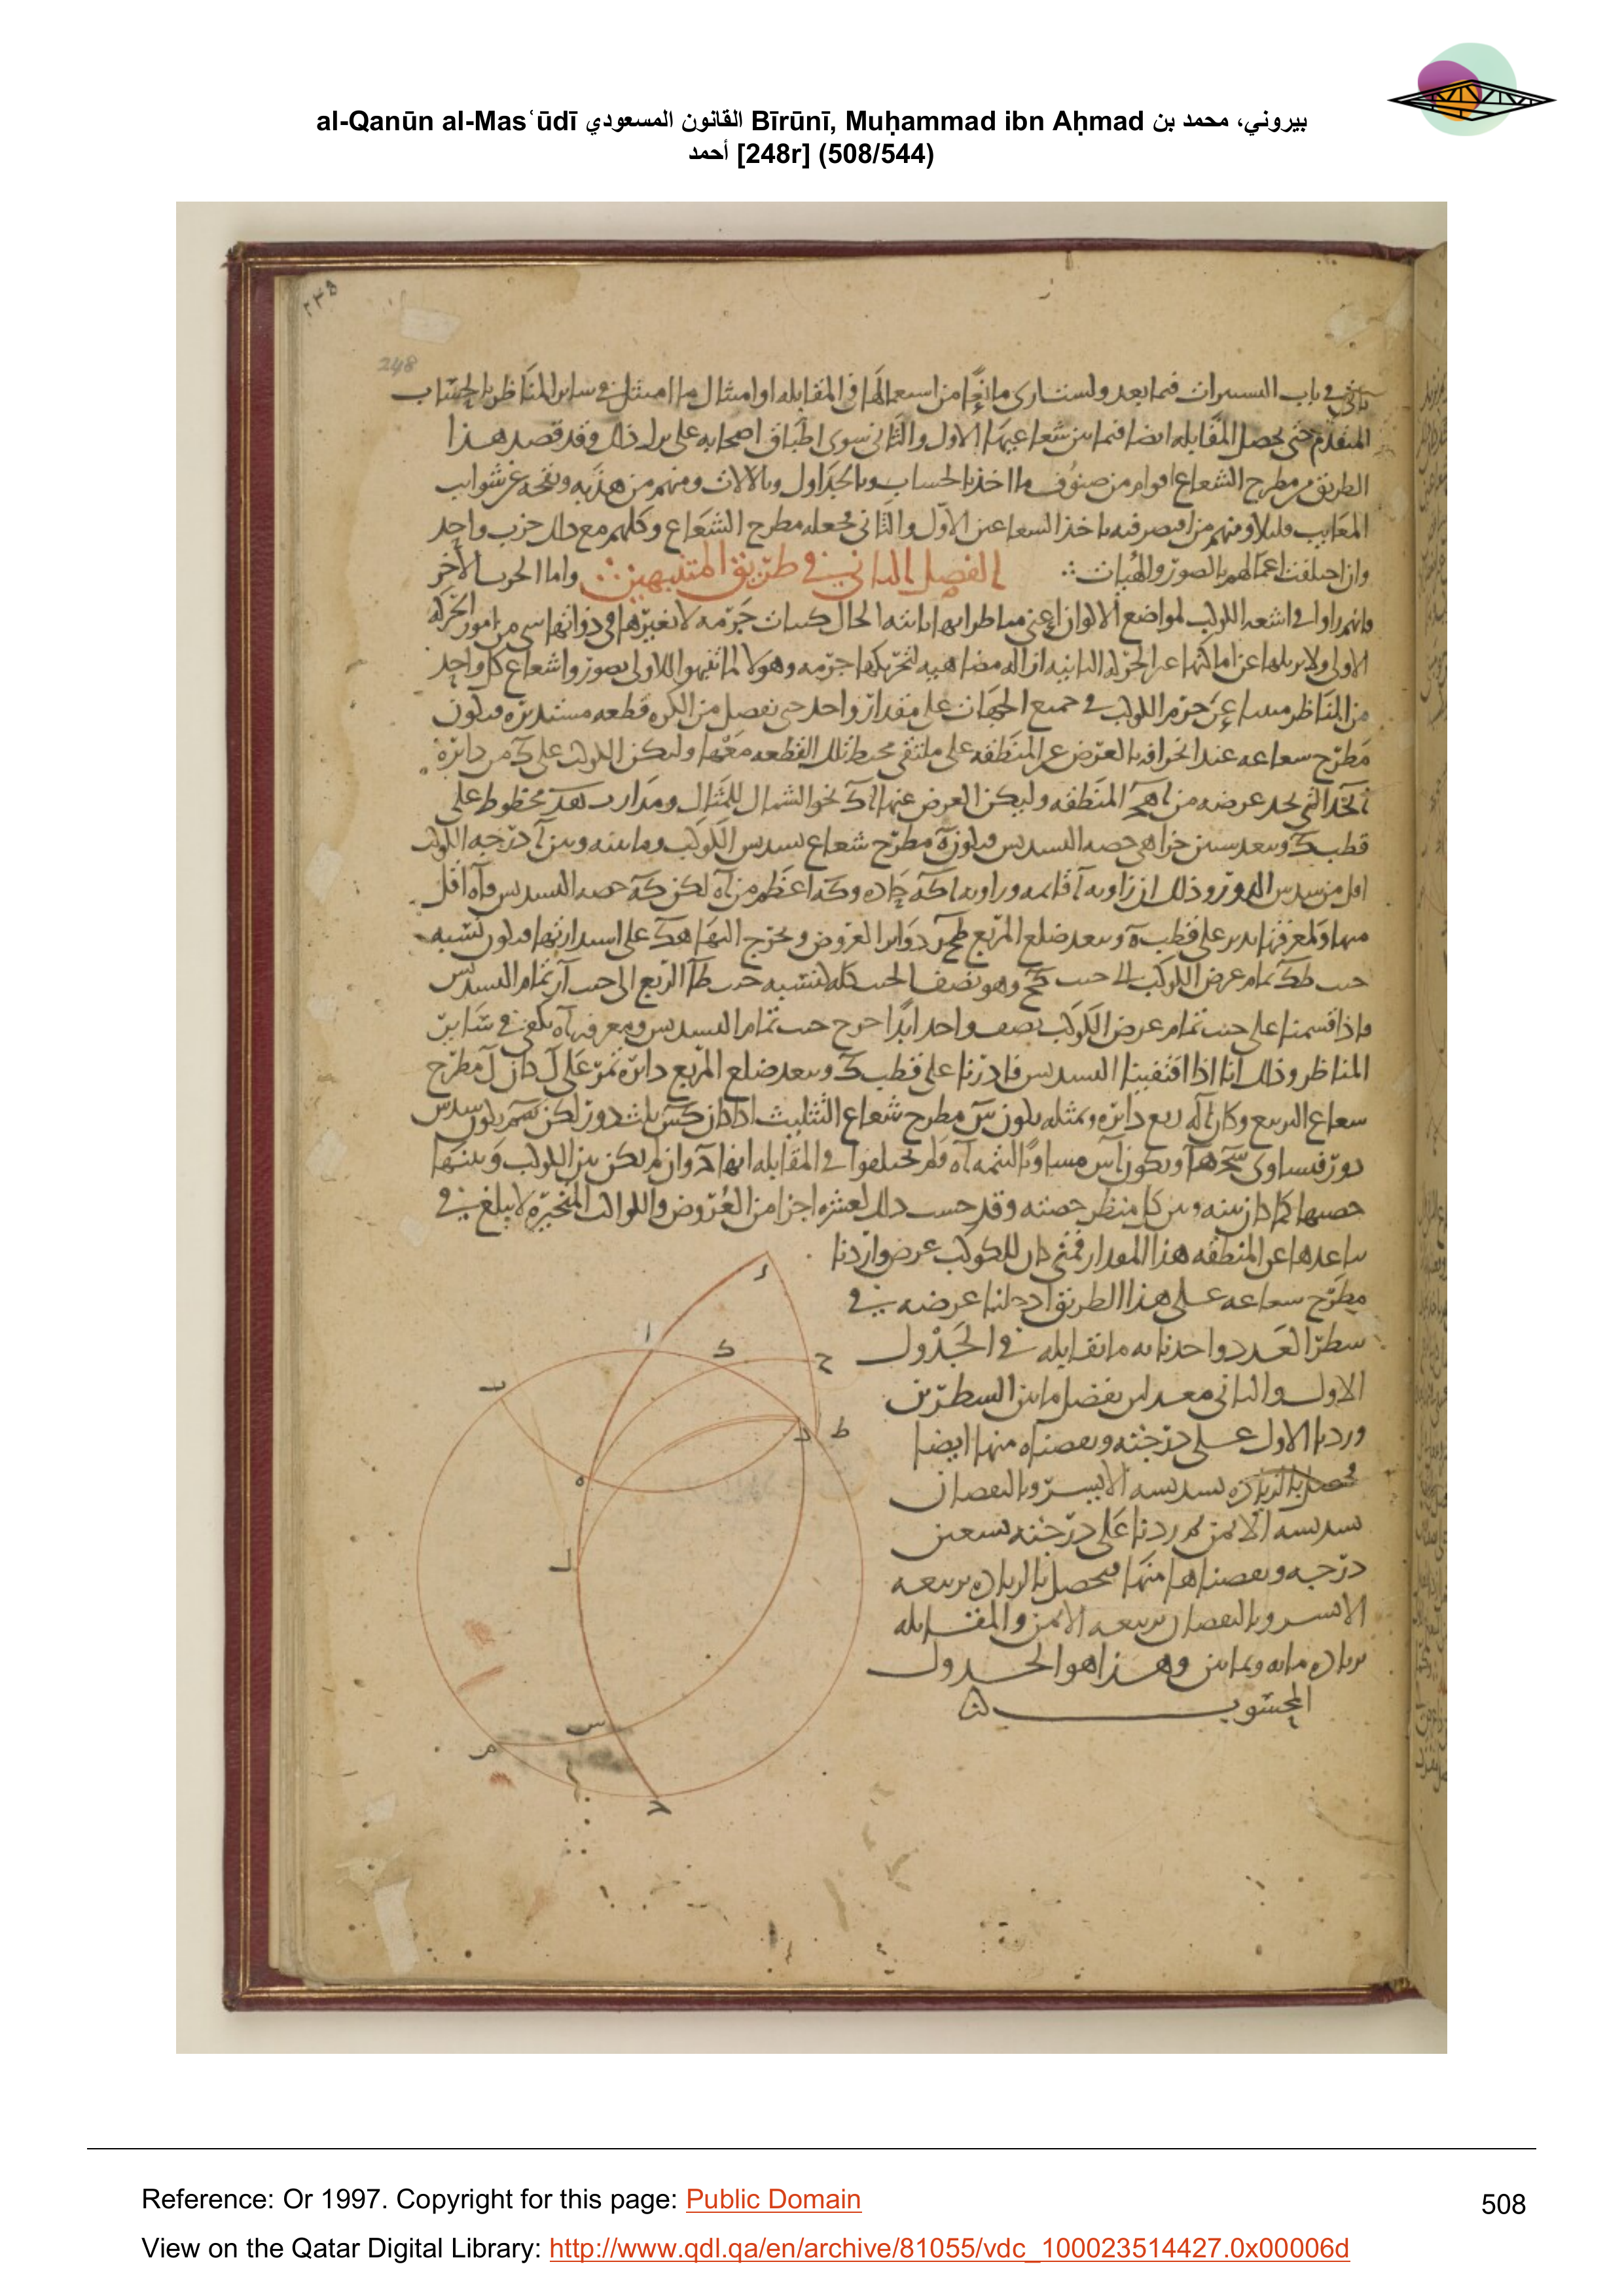 al-Qanūn al-Masʻūdī القانون المسعودي Bīrūnī, Muḥammad ibn Aḥmad بيروني، محمد بن
أحمد [248r] (508/544)
٢٣٥
248
في باب التسييرات فيما بعد ولست ارى مانعا من استعمالها في المقابله او امتثال ما امتثل في ساير المناظر بالحساب
المتقدم حتى يحصل المقابله ايضا فيما بين شعاعيها الاول والثانى سوى اطباق اصحابه على ترك ذلك وقد قصد هذا
الطريق من مطرح الشعاع اقوام من صنوف ما اخذ بالحساب وبالجداول وبالالات ومنهم من هذبه ونقحه عن شوايب
المعايب قليلا ومنهم من اقتصر فيه باخذ الشعاعين الاول والثانى فجعله مطرح الشعاع وكلهم مع ذلك حزب واحد
وان اختلفت اعمالهم بالصور والهيات
الفصل الثاني في طريق المتنبهين
واما الحزب الاخر
فانهم راوا في اشعه الكوكب لمواضع الالوان اعنى مناظرها
الاولى ولا يزيلها عن اماكنها عن الحركه الثانيه ازاله مضاهيه لتحريكها جرمه وهولا لما تنبهوا للاولى تصوروا شعاع كل واحد
من المناظر عن جرم الكوكب في جميع الجهات على مقدار واحد حتى يفصل من الكره قطعه مستديره فيكون
مطرح شعاعه عند انحرافه بالعرض عن المنطقه على ملتقى محيط تلك القطعه معها وليكن الكوكب على ك من دايره
التى تحد عرضه من المنطقه وليكن العرض عنها نحو الشمال للمثال ومدار محطوط على
قطب ك وببعد ستين جزا هى حصه التسديس فيكون ه مطرح شعاع تسديس الكوكب وما بينه وبين ا درجه الكوكب
اقل من سدس الدور وذلك ان زاويه ا قايمه وزاويه حاده و اعظم من اه لكن كه حصه التسديس واه اقل
منها ولمعرفتها ندير على قطب ه وببعد ضلع المربع دوائر العروض ونخرج اليها على استدارتها فيكون نسبه
جيب طك تمام عرض الكوكب الى جيب كح وهو نصف الجيب كله كنسبه جيب طا الربع الى جيب از تمام التسديس
فاذا قسمنا على جيب تمام عرض الكوكب نصف واحد ابدا خرج جيب تمام التسديس ومعرفه اه تكفى في ساير
المناظر وذلك انا اذا اقتفينا التسديس فادرنا على قطب ك وببعد ضلع المربع دايره تمر على ل كان ل مطرح
شعاع التربيع وكان ال ربع دايره وبمثله يكون س مطرح شعاع التثليث اذا كان كس ثلث دور لكن سم يكون سدس
دور فيساوى ويكون مساويا لتتمه اه ولم يختلفوا في المقابله انها ح وان لم يكن بين الكوكب وبينها
حصتها كما كان بينه وبين كل منظر حصته وقد حسب ذلك لعشره اجزا من العروض والكواكب المتحيره لا يبلغ في
تباعدها عن المنطقه هذا المقدار فمتى كان للكوكب عرض واردنا
مطرح شعاعه على هذا الطريق ادخلنا عرضه في
سطر العدد واخذنا به ما تقابله في الجدول
الاول والثانى معدلين بفضل ما بين السطرين
وزدنا الاول على درجته ونقصناه منها ايضا
فحصل بالزياده تسديسه الايسر وبالنقصان
تسديسه الايمن ثم زدنا على درجته تسعين
درجه ونقصناها منها فحصل بالزياده تربيعه
الايسر وبالنقصان تربيعه الايمن والمقابله
بزياده مايه وثمانين وهذا هو الجدول
المحسوب
ز
ا
ك
ح
ب
د
ط
ه
ل
س
م
ح
Reference: Or 1997. Copyright for this page: Public Domain
508
View on the Qatar Digital Library: http://www.qdl.qa/en/archive/81055/vdc_100023514427.0x00006d